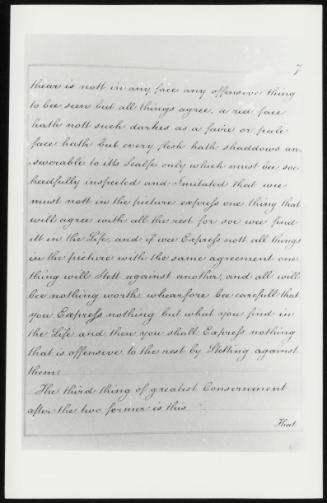 7
thear is nott in any face any offensive thing
to bee seen but all things agree, a red face
hath nott such darkes as a faire or pale
face hath but every flesh hath shaddows an
sworable to itts sealfe only which must bee soe
heedfully inspected and Imitated that wee
must nott in the picture express one thing that
will agree with all the rest for soe wee find
itt in the Life, and if wee Express nott all things
in the picture with the same agreement one
thing will Stett against another, and all will
bee nothing worth wharfore bee carefull that
you Express nothing but what you find in
the Life and then you shall Express nothing
that is offensive to the rest by Stetting against
them
The third thing of greatest Consernment
after the two former is this
That